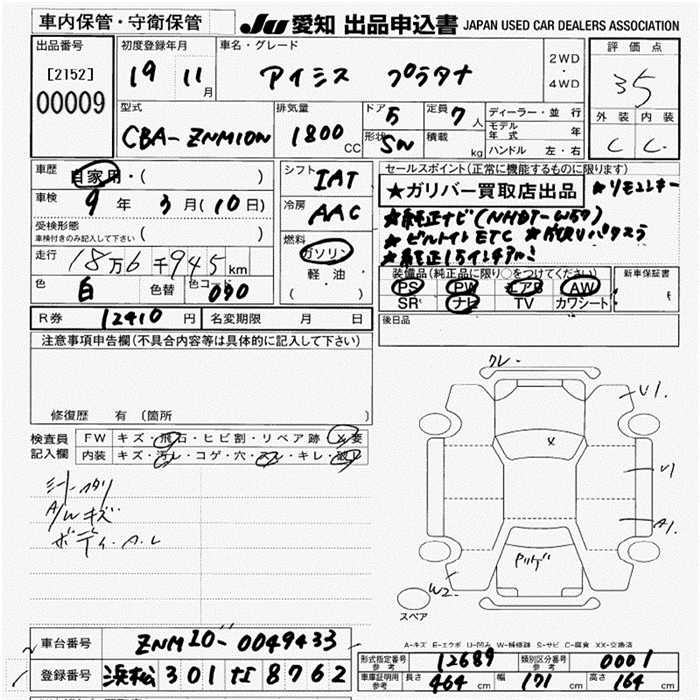 車内保管・守衛保管
JU 愛知 出品申込書 JAPAN USED CAR DEALERS ASSOCIATION
出品番号 初度登録年月 車名・グレード 2WD・4WD 評価点
[2152] 19 11月 アイシス プラタナ 35
00009
型式 排気量 ドア 5 定員 7人 ディーラー・並行 外装 内装
CBA-ZNM10W 1800CC 形状 SW 積載 kg モデル年式 年 C C
ハンドル 左・右
車歴 自家用・( ) シフト IAT セールスポイント(正常に機能するものに限ります)
車検 9年 3月(10日) 冷房 AAC ★ガリバー買取店出品 ★リモコンキー
受検形態 ( ) ★純正ナビ(NHDT-W59)
車検付きのみ記入して下さい
燃料 ガソリン ★ビルトインETC
走行 18万6千945km 軽油 ★純正15インチアルミ
色 白 色替 色コード 040 ( ) 装備品(純正品に限り○をつけてください) 新車保証書
PS PW エアB AW
R券 12410円 名変期限 月 日 SR ナビ TV カワシート
後日品
注意事項申告欄(不具合内容等は具体的に記入して下さい)
修復歴 有 〔箇所 〕
検査員記入欄 FW キズ・飛石・ヒビ割・リペア跡・X要
内装 キズ・汚レ・コゲ・穴・スレ・キレ・破レ
A/Wキズ
ボディ・A.L
クレ
U1
X
U1
A1
W2
スペア
A-キズ E-エクボ U-凹み W-補修跡 S-サビ C-腐食 XX-交換済
車台番号 ZNM10-0049433 形式指定番号 参考 12689 類別区分番号 参考 0001
登録番号 浜松 301 ナ 8762 車庫証明用 参考 長さ 464cm 幅 171cm 高さ 164cm